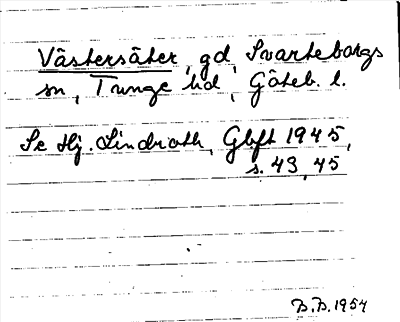 Västersäter, gd, Svarteborgs
sn, Tunge hd, Göteb. l.
Se Hj. Lindroth, Gbft 1945,
s. 43, 45
B.B. 1954